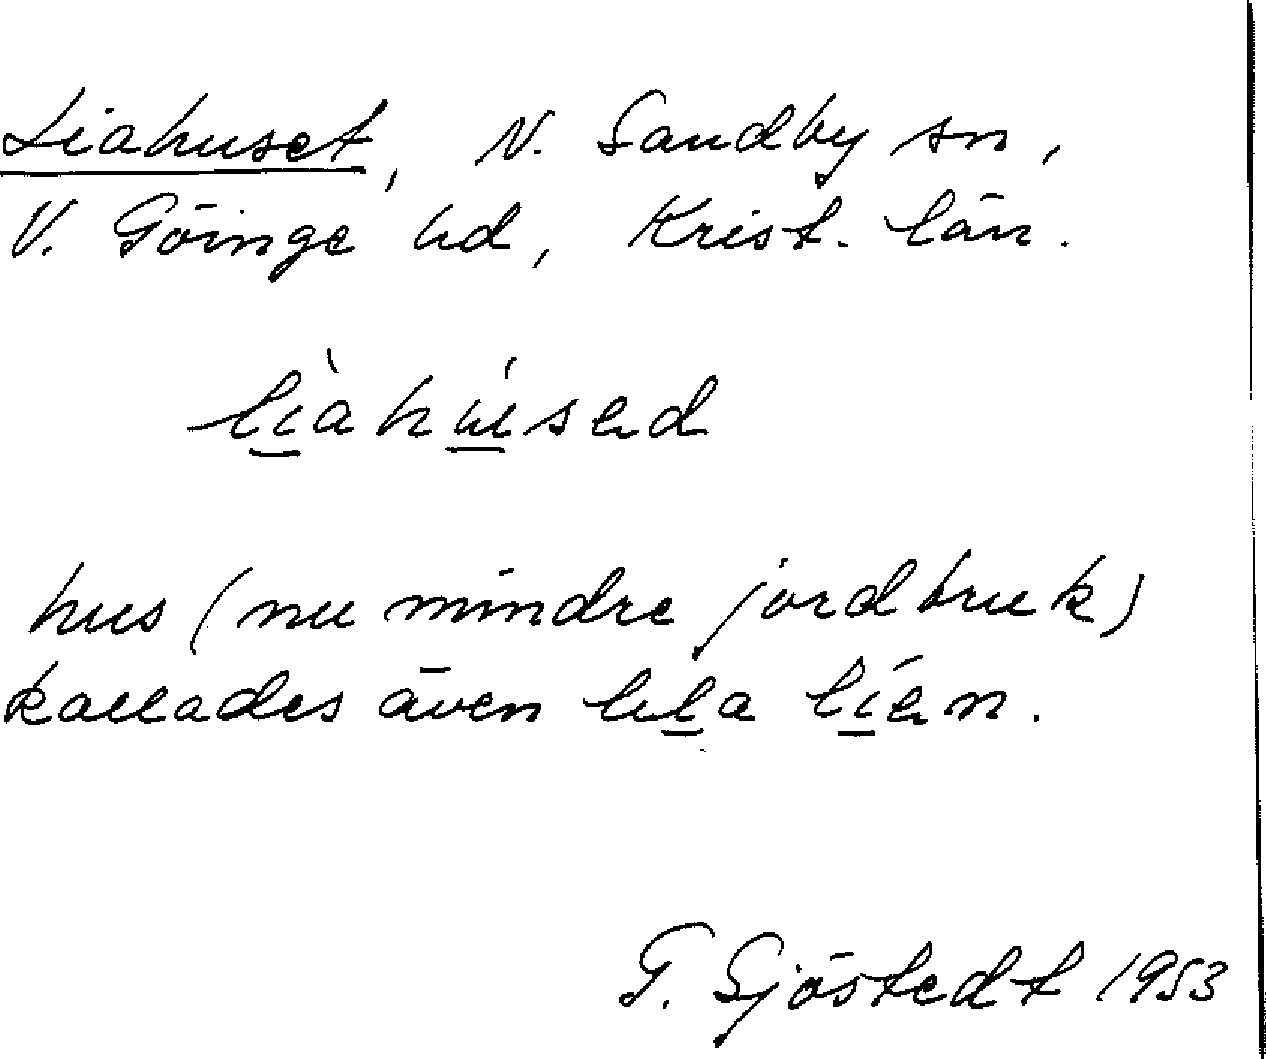 Liahuset, N. Sandby sn,
V. Göinge hd, Krist. län.
lìahúsed
hus (nu mindre jordbruk)
kallades även lila líen.
G. Sjöstedt 1953